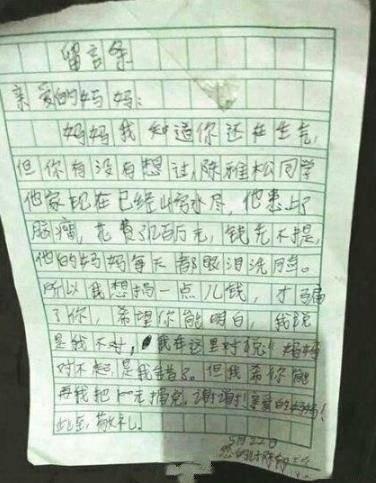 留言条
亲爱的妈妈:
妈妈我知道你还在生气,
但你有没有想过,陈雅松同学
他家现在已经山穷水尽,他患上了
脑瘤,花费了几百万元,钱先不提,
他的妈妈每天都眼泪洗面。
所以我想捐一点儿钱,才骗
了你,希望你能明白,我说
是我不对,我在这里对你说:妈妈
对不起,是我错了。但我希望你能
再我把一元捐完,谢谢!亲爱的妈妈!
此至,敬礼。
5月22日